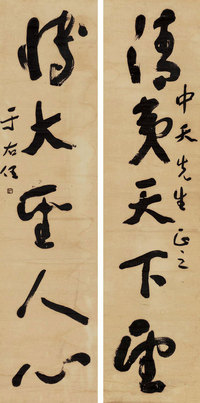 中天先生正之
清夷天下望
博大聖人心
于右任